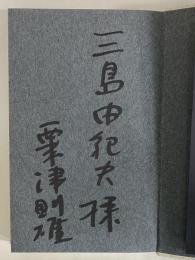 三島由紀夫様
粟津則雄